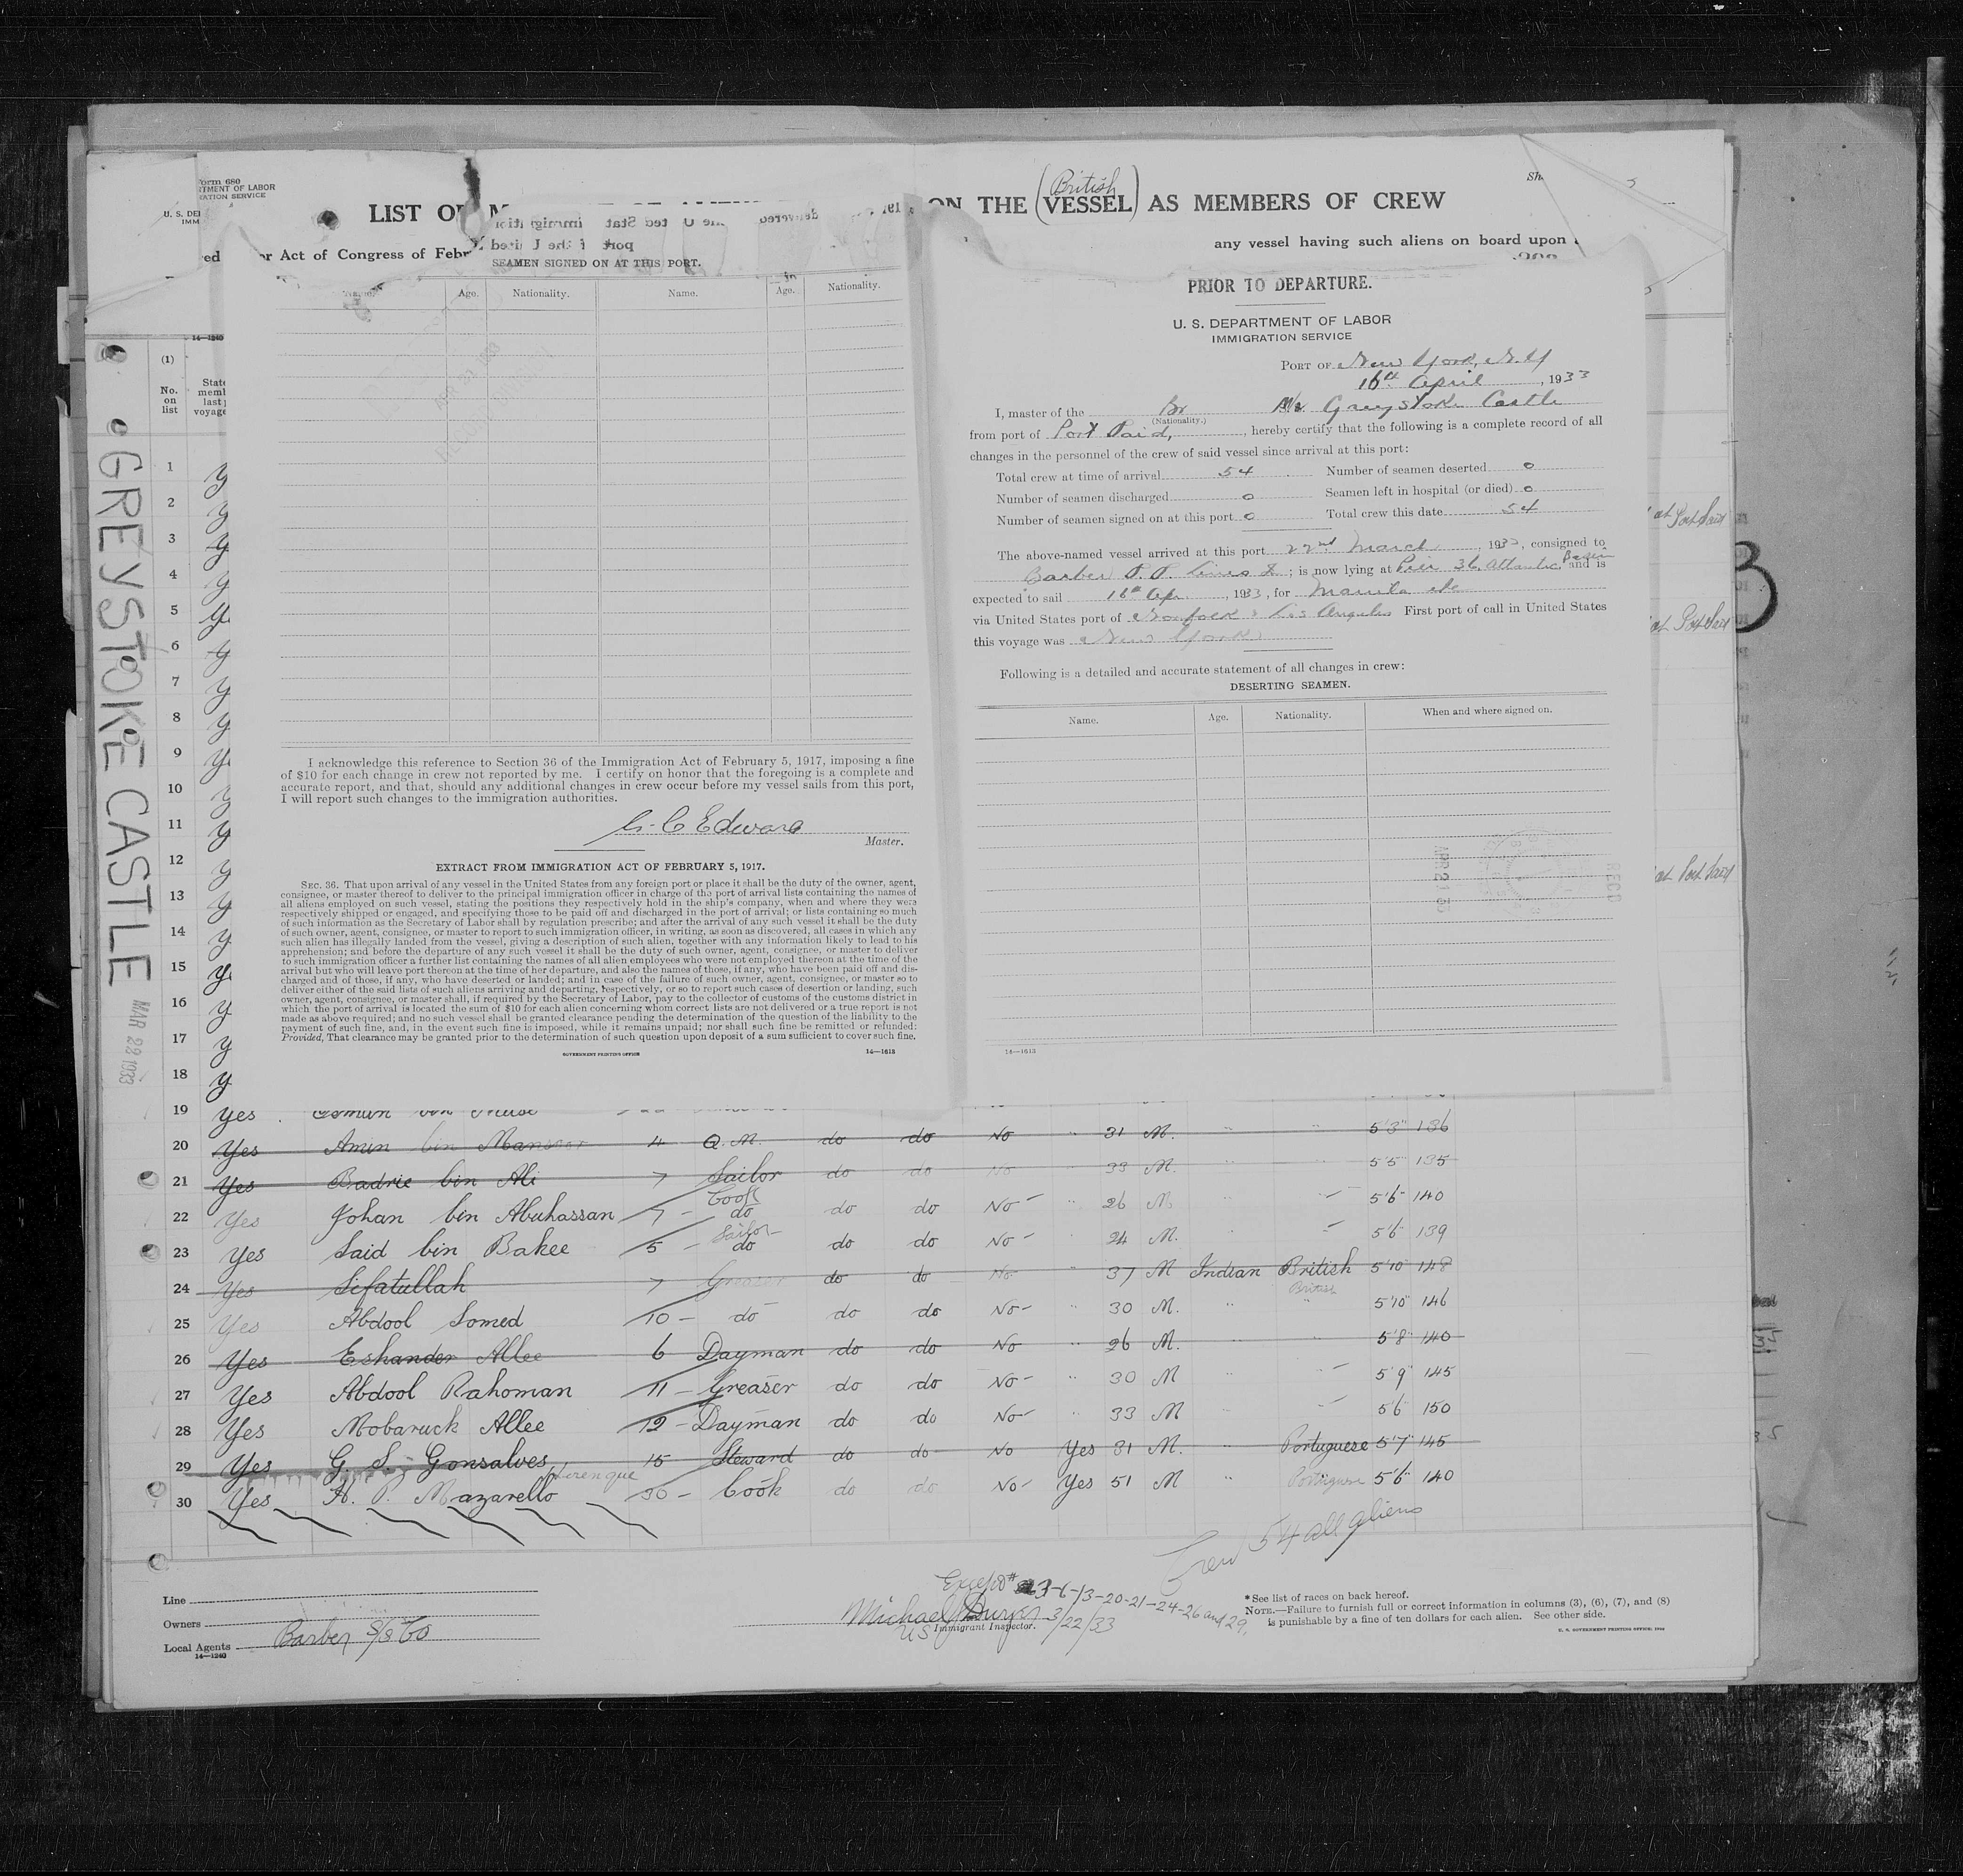 Form 680
U. S. DEPARTMENT OF LABOR
IMMIGRATION SERVICE
LIST OF
ON THE (British VESSEL) AS MEMBERS OF CREW
Act of Congress of
any vessel having such aliens on board upon
SEAMEN SIGNED ON AT THIS PORT.
Name. Age. Nationality. Name. Age. Nationality.
I acknowledge this reference to Section 36 of the Immigration Act of February 5, 1917, imposing a fine
of $10 for each change in crew not reported by me. I certify on honor that the foregoing is a complete and
accurate report, and that, should any additional changes in crew occur before my vessel sails from this port,
I will report such changes to the immigration authorities.
G. C Edward
Master.
EXTRACT FROM IMMIGRATION ACT OF FEBRUARY 5, 1917.
SEC. 36. That upon arrival of any vessel in the United States from any foreign port or place it shall be the duty of the owner, agent,
consignee, or master thereof to deliver to the principal immigration officer in charge of the port of arrival lists containing the names of
all aliens employed on such vessel, stating the positions they respectively hold in the ship's company, when and where they were
respectively shipped or engaged, and specifying those to be paid off and discharged in the port of arrival; or lists containing so much
of such information as the Secretary of Labor shall by regulation prescribe; and after the arrival of any such vessel it shall be the duty
of such owner, agent, consignee, or master to report to such immigration officer, in writing, as soon as discovered, all cases in which any
such alien has illegally landed from the vessel, giving a description of such alien, together with any information likely to lead to his
apprehension; and before the departure of any such vessel it shall be the duty of such owner, agent, consignee, or master to deliver
to such immigration officer a further list containing the names of all alien employees who were not employed thereon at the time of the
arrival but who will leave port thereon at the time of her departure, and also the names of those, if any, who have been paid off and dis-
charged and of those, if any, who have deserted or landed; and in case of the failure of such owner, agent, consignee, or master so to
deliver either of the said lists of such aliens arriving and departing, respectively, or so to report such cases of desertion or landing, such
owner, agent, consignee, or master shall, if required by the Secretary of Labor, pay to the collector of customs of the customs district in
which the port of arrival is located the sum of $10 for each alien concerning whom correct lists are not delivered or a true report is not
made as above required; and no such vessel shall be granted clearance pending the determination of the question of the liability to the
payment of such fine, and, in the event such fine is imposed, while it remains unpaid; nor shall such fine be remitted or refunded:
Provided, That clearance may be granted prior to the determination of such question upon deposit of a sum sufficient to cover such fine.
GOVERNMENT PRINTING OFFICE 14—1613
PRIOR TO DEPARTURE.
U. S. DEPARTMENT OF LABOR
IMMIGRATION SERVICE
PORT OF New York, N.Y
16th April, 1933
I, master of the Br M/v. Greystoke Castle
(Nationality.)
from port of Port Said, hereby certify that the following is a complete record of all
changes in the personnel of the crew of said vessel since arrival at this port:
Total crew at time of arrival 54 Number of seamen deserted 0
Number of seamen discharged 0 Seamen left in hospital (or died) 0
Number of seamen signed on at this port 0 Total crew this date 54
The above-named vessel arrived at this port 22nd March, 1933, consigned to
Barber S.S. Lines; is now lying at Pier 36, Atlantic Basin and is
expected to sail 16th Apr., 1933, for Manila etc
via United States port of Norfolk & Los Angeles First port of call in United States
this voyage was New York
Following is a detailed and accurate statement of all changes in crew:
DESERTING SEAMEN.
Name. Age. Nationality. When and where signed on.
RECD
APR 21 33
14—1613
GREYSTOKE CASTLE
MAR 22 1933
14—1240
(1)
No. on list
1
2
3
4
5
6
7
8
9
10
11
12
13
14
15
16
17
18
at Port Said
at Port Said
at Port Said
19 Yes
20 Yes Amin bin Mansoor 4 Q.M. do do No " 31 M. " " 5'3" 136
21 Yes Badrie bin Ali 7 Sailor do do No 33 M. 5'5" 135
22 Yes Johan bin Abuhassan 7 - Cook do do do No " 26 M. " 5'6" 140
23 Yes Said bin Bakee 5 - Sailor do do do No " 24 M. 5'6" 139
24 Yes Sifatullah 7 Greaser do do No " 37 M Indian British 5'10" 148
25 Yes Abdool Somed 10 - do do do No " 30 M. " British 5'10" 146
26 Yes Eshander Allee 6 Dayman do do No " 26 M. " 5'8" 140
27 Yes Abdool Rahoman 11 - Greaser do do No " 30 M " 5'9" 145
28 Yes Mobaruck Allee 12 - Dayman do do No " 33 M " 5'6" 150
29 Yes G. S. Gonsalves 15 Steward do do No Yes 31 M. " Portuguese 5'7" 145
30 Yes A. P. Mazarello 30 - Cook do do No Yes 51 M " Portuguese 5'6" 140
Crew 54 all aliens
Except # 3-6-13-20-21-24-26 and 29.
Michael 3/22/33
US Immigrant Inspector.
Line
Owners
Local Agents Barber S/S Co
14—1240
*See list of races on back hereof.
NOTE.—Failure to furnish full or correct information in columns (3), (6), (7), and (8)
is punishable by a fine of ten dollars for each alien. See other side.